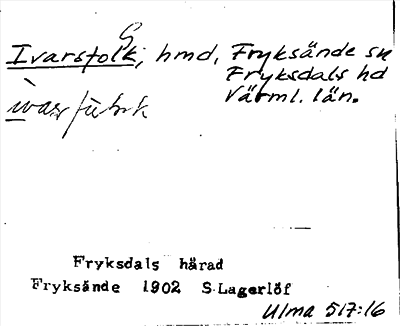 Ivarsfolk, hmd, Fryksände sn
Fryksdals hd
Värml. län.
Fryksdals härad
Fryksände 1902 S.Lagerlöf
Ulma 517:16